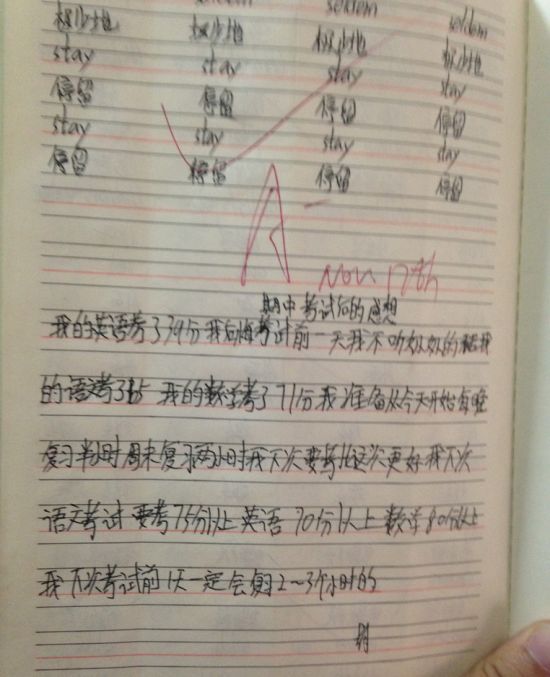 seldom seldom seldom
极少地 极少地 极少地 极少地
stay stay stay stay
停留 停留 停留 停留
stay stay stay stay
停留 停留 停留 停留
A-
Nov 17th
期中考试后的感想
我的英语考了39分我后悔考试前一天我不听奶奶的话我
的语考了 我的数学考了71分我准备从今天开始每晚
复习半小时周末复习两小时我下次要考比这次更好我下次
语文考试要考75分以上英语70分以上数学80分以上
我下次考试前1天一定会复习2~3个小时的